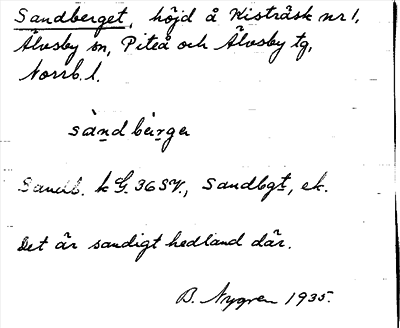 Sandberget, höjd å Kisträsk nr 1,
Älvsby sn, Piteå och Älvsby tg,
Norrb. l.
sàndbærga
Sandb. k G. 36 SV., Sandbgt, ek.
Det är sandigt hedland där.
B. Nygren 1935.